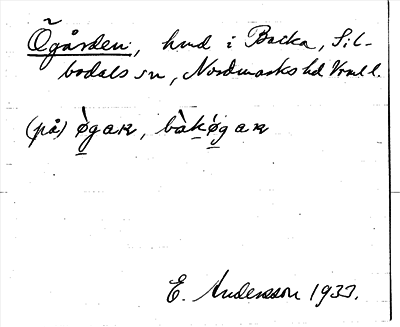 Õgården, hmd i Backa, Sil-
bodals sn, Nordmarks hd Vrml l.
(på) ø̀gaʀ, bàkø̀gaʀ
E. Andersson 1933.